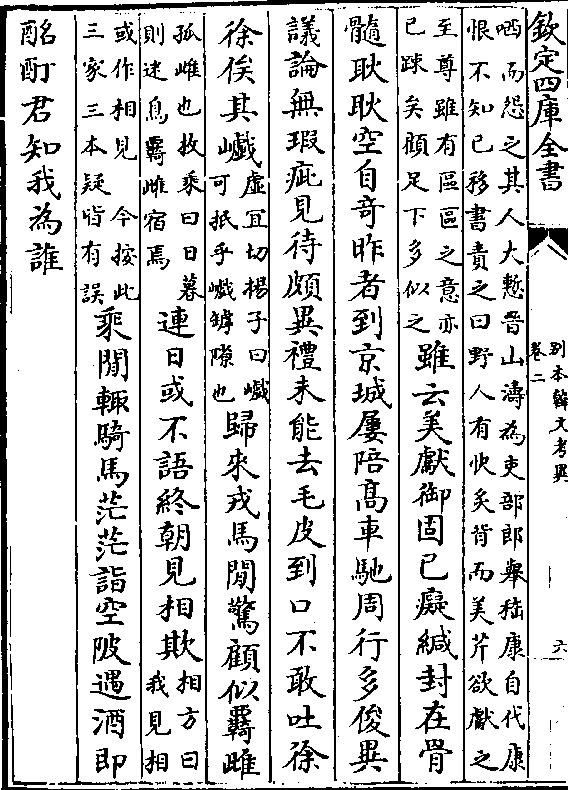 欽定四庫全書
別本韓文考異
卷二
六
哂而怨之其人大慙晉山濤為吏部郎舉嵇康自代康
恨不知已移書責之曰野人有快炙背而美芹欲獻之
至尊雖有區區之意亦
已疎矣顧足下多似之
雖云美獻御固已癡緘封在骨
髓耿耿空自竒昨者到京城屢陪髙車馳周行多俊異
議論無瑕疵見待頗異禮未能去毛皮到口不敢吐徐
徐俟其巇
虛宜切楊子曰巇
可抵乎巇罅隙也
歸來戎馬閒驚顧似羇雌
孤雌也枚乗曰日暮
則迷鳥羇雌宿焉
連日或不語終朝見相欺
相方曰
我見相
或作相見今按此
三家三本疑皆有誤
乘閒輒騎馬茫茫詣空陂遇酒即
酩酊君知我為誰